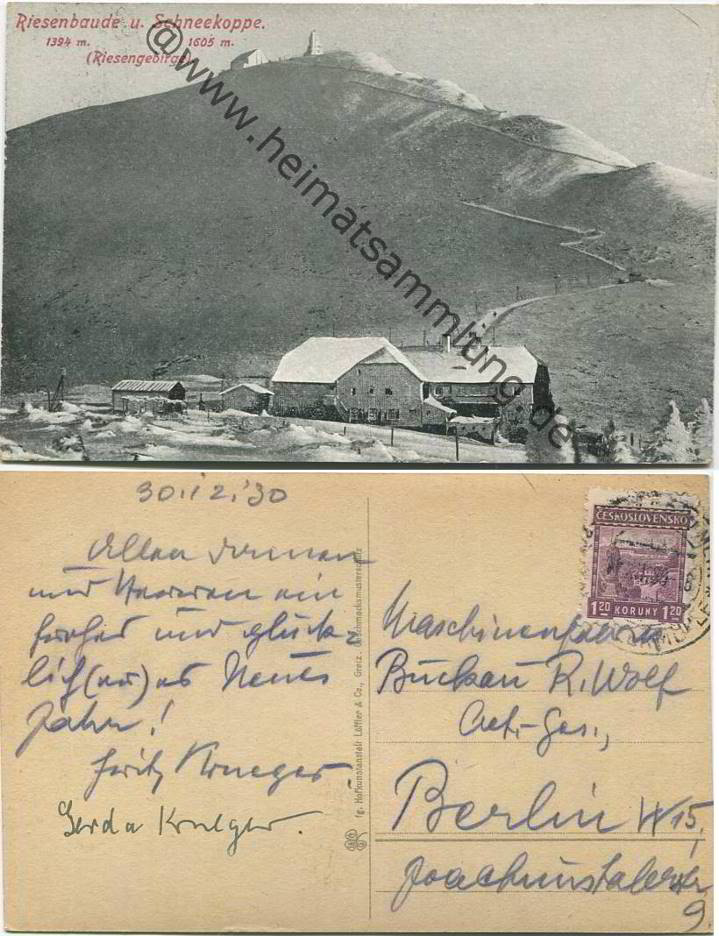 Riesenbaude u. Schneekoppe.
1394 m. 1605 m.
(Riesengebirge)
@www.heimatsammlung.de
30.12.'30
Allen Damen
und Herren ein
frohes und glück-
lich(er)es Neues
Jahr!
Fritz Krueger
Gerda Krueger.
fg. Hofkunstanstalt Löffler & Co., Greiz.
ČESKOSLOVENSKO
1.20 KORUNY 1.20
Maschinenfabrik
Buckau R. Wolf
Act.-Ges.,
Berlin W 15,
Joachimstalerstr
9.